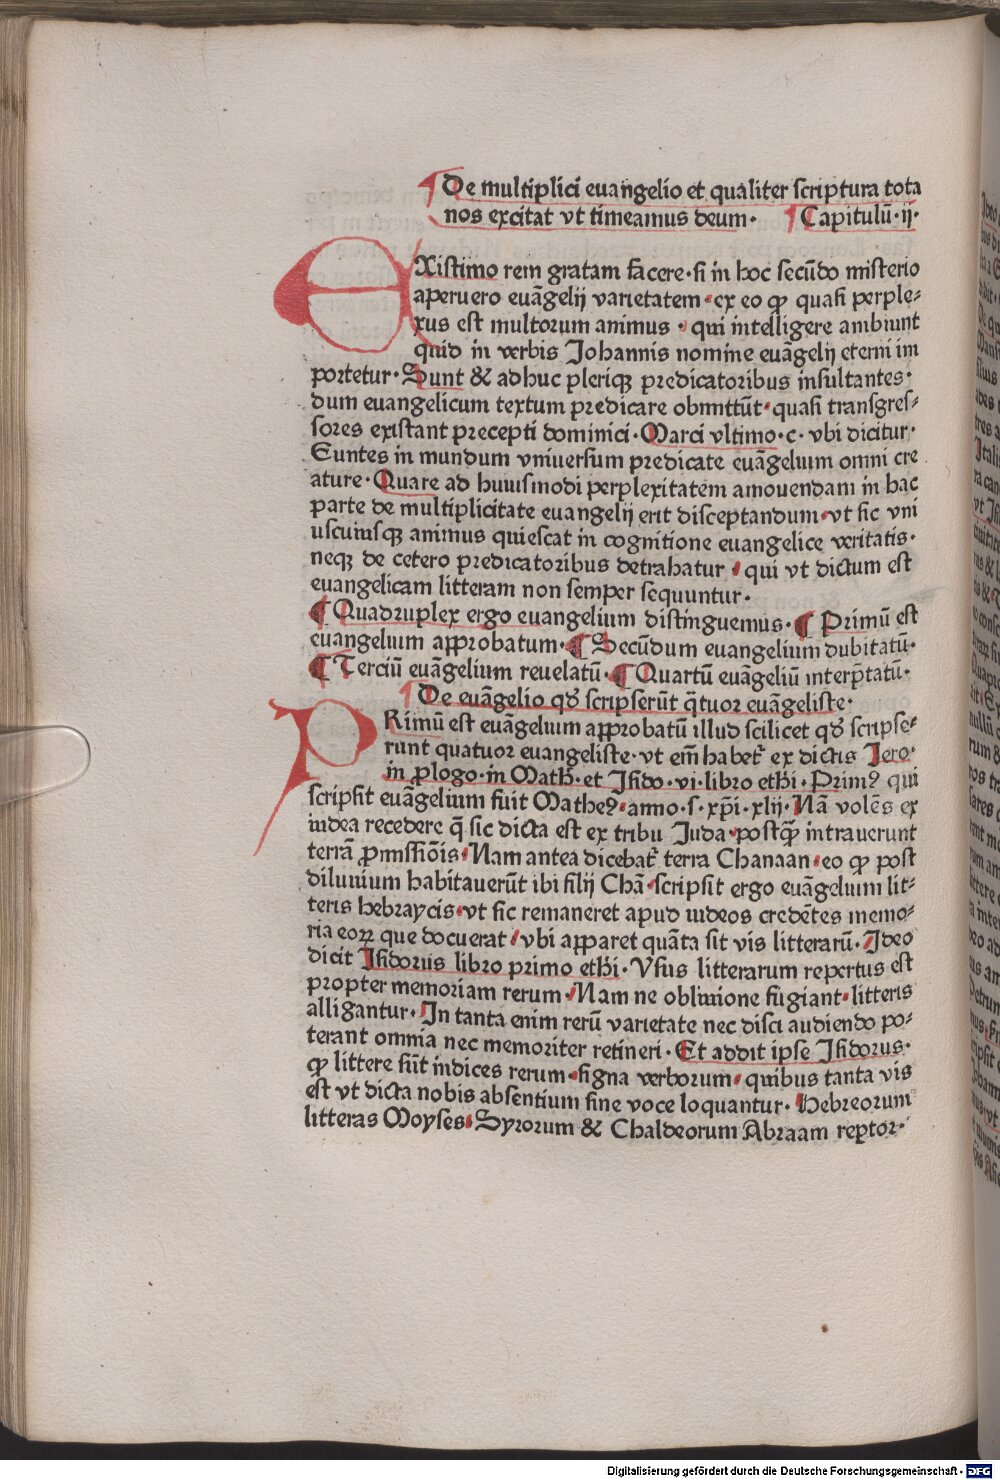 ¶ De multiplici euangelio et qualiter scriptura tota
nos excitat vt timeamus deum· ¶ Capitulū·ij·
EXistimo rem gratam facere·si in hoc secūdo misterio
aperuero euāgelij varietatem·ex eo ꝙ quasi perple⸗
xus est multorum animus · qui intelligere ambiunt
quid in verbis Johannis nomine euāgelij eterni im
portetur·Sunt & adhuc pleriqꝫ predicatoribus insultantes·
dum euangelicum textum predicare obmittūt·quasi transgres⸗
sores existant precepti dominici·Marci vltimo·c·vbi dicitur·
Euntes in mundum vniuersum predicate euāgelium omni cre
ature·Quare ad huiusmodi perplexitatem amouendam in hac
parte de multiplicitate euangelij erit disceptandum·vt sic vni
uscuiusqꝫ animus quiescat in cognitione euangelice veritatis·
neqꝫ de cetero predicatoribus detrahatur · qui vt dictum est
euangelicam litteram non semper sequuntur·
¶ Quadruplex ergo euangelium distinguemus·¶ Primū est
euangelium approbatum·¶ Secūdum euangelium dubitatū·
¶ Terciū euāgelium reuelatū·¶ Quartū euāgeliū interp̄tatū·
¶ De euāgelio qđ scripserūt q̄tuor euāgeliste·
PRimū est euāgelium approbatū illud scilicet qđ scripse⸗
runt quatuor euangeliste·vt em̄ habet᷑ ex dictis Jero·
in ꝓlogo·in Math̄·et Jsido·vi·libro eth̄i·Primꝰ qui
scripsit euāgelium fuit Matheꝰ·anno·s·xp̄i·xlij·Nā volēs ex
iudea recedere q̄ sic dicta est ex tribu Juda·postꝙ̄ intrauerunt
terrā ꝓmissiōis·Nam antea dicebat᷑ terra Chanaan·eo ꝙ post
diluuium habitauerūt ibi filij Chā·scripsit ergo euāgelium lit⸗
teris hebraycis·vt sic remaneret apud iudeos credētes memo⸗
ria eoꝝ que docuerat·vbi apparet quāta sit vis litterarū·Jdeo
dicit Jsidorus libro primo eth̄i·Vsus litterarum repertus est
propter memoriam rerum·Nam ne obliuione fugiant·litteris
alligantur·Jn tanta enim rerū varietate nec disci audiendo po⸗
terant omnia nec memoriter retineri·Et addit ipse Jsidorus·
ꝙ littere sūt indices rerum·signa verborum·quibus tanta vis
est vt dicta nobis absentium sine voce loquantur·Hebreorum
litteras Moyses·Syrorum & Chaldeorum Abraam reptor·
Digitalisierung gefördert durch die Deutsche Forschungsgemeinschaft - DFG